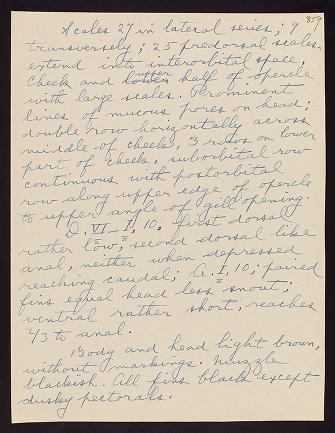 859
Scales 27 in lateral series; 9
transversely; 25 predorsal scales
extend into interorbital space.
Cheek and upper half of opercle
with large scales. Prominent
lines of mucous pores on head;
double row horizontally across
middle of cheek, 3 rows on lower
part of cheek, suborbital row
continuous with postorbital
row along upper edge of opercle
to upper angle of gill opening.
D. VI-I, 10, first dorsal
rather low, second dorsal like
anal, neither when depressed
reaching caudal; A. I, 10; paired
fins equal head less snout;
ventral rather short, reaches
2/3 to anal.
Body and head light brown,
without markings. Muzzle
blackish. All fins black except
dusky pectorals.